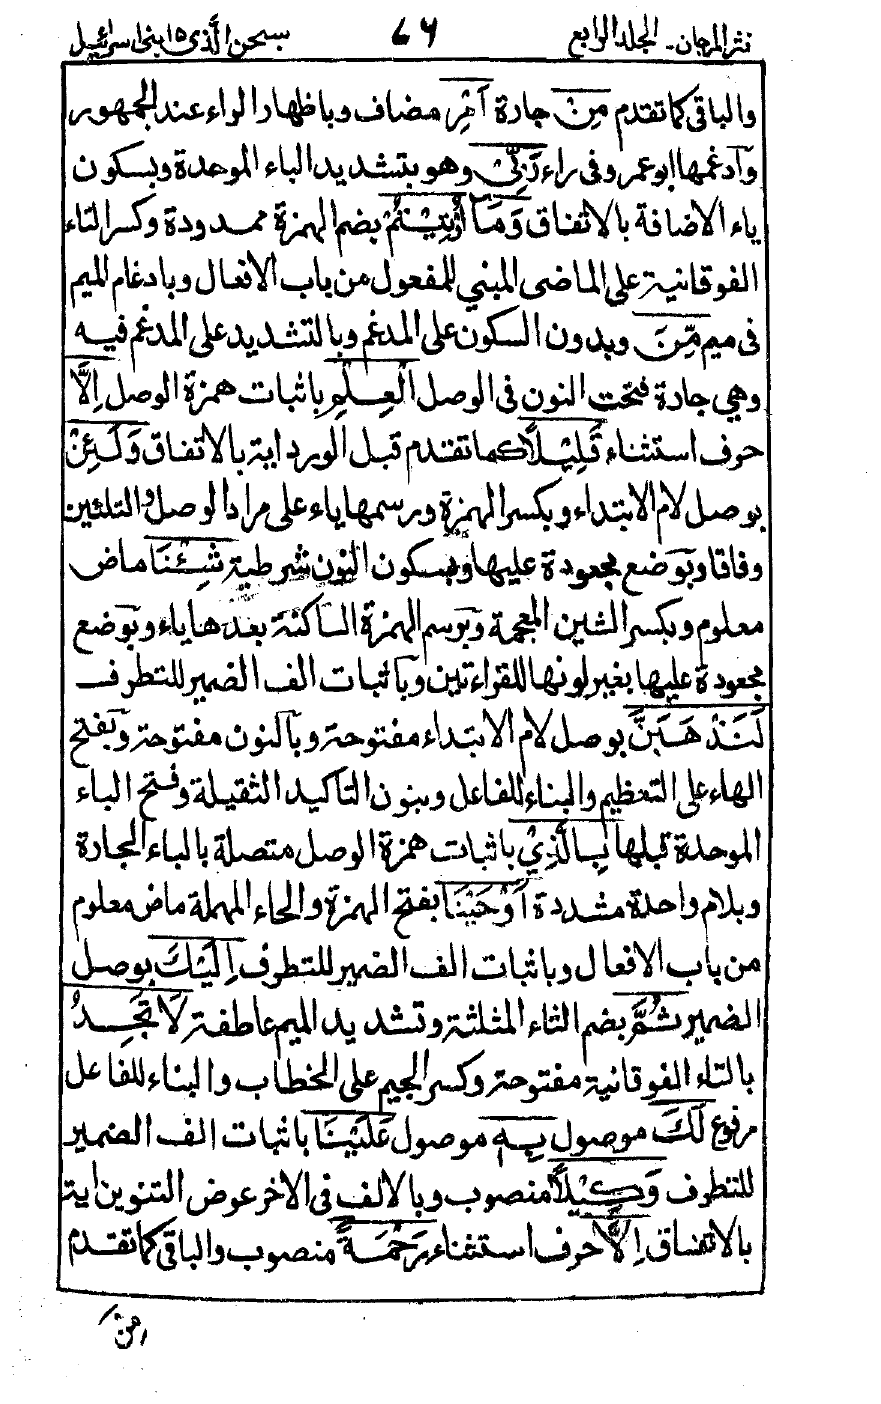 نثر المرجان - الجلد الرابع ٧٦ سبحن الذى ١٥ بنى اسرائيل
والباقى كما تقدم مِنْ جارة اَمْرِ مضاف وباظهار الراء عند الجمهور
وآدغمها ابو عمرو فى راء رَبِّىْ وهو بتشديد الباء الموحدة وبسكون
ياء الاضافة بالاتفاق وَمَآ اُوْتِيْتُمْ بضم الهمزة ممدودة وكسر التاء
الفوقانية على الماضى المبني للمفعول من باب الافعال وبادغام الميم
فى ميم مِّنَ وبدون السكون على المدغم وبالتشديد على المدغم فيه
وهي جارة فتحت النون فى الوصل الْعِلْمِ باثبات همزة الوصل اِلَّا
حرف استثناء قَلِيْلًا كما تقدم قبل الورد اية بالاتفاق وَلَئِنْ
بوصل لام الابتداء وبكسر الهمزة ورسمها ياء على مراد الوصل والتلثين
وفاقا وبوضع مجعودة عليها وبسكون النون شرطية شِئْنَا ماض
معلوم وبكسر الشين المعجمة وبرسم الهمزة الساكنة بعدها ياء وبوضع
مجعودة عليها بغير لونها للقراءتين وباثبات الف الضمير للتطرف
لَنَذْهَبَنَّ بوصل لام الابتداء مفتوحة وبالنون مفتوحة وبفتح
الهاء على التعظيم والبناء للفاعل وبنون التاكيد الثقيلة وفتح الباء
الموحدة قبلها بِالَّذِيْ باثبات همزة الوصل متصلة بالباء الجارة
وبلام واحدة مشددة اَوْحَيْنَا بفتح الهمزة والحاء المهملة ماض معلوم
من باب الافعال وباثبات الف الضمير للتطرف اِلَيْكَ بوصل
الضمير ثُمَّ بضم الثاء المثلثة وتشديد الميم عاطفة لَا تَجِدُ
بالتاء الفوقانية مفتوحة وكسر الجيم على الخطاب والبناء للفاعل
مرفوع لَكَ موصول بِهٖ موصول عَلَيْنَا باثبات الف الضمير
للتطرف وَكِيْلًا منصوب وبالالف فى الاخر عوض التنوين اية
بالاتفاق اِلَّا حرف استثناء رَحْمَةً منصوب والباقى كما تقدم
من